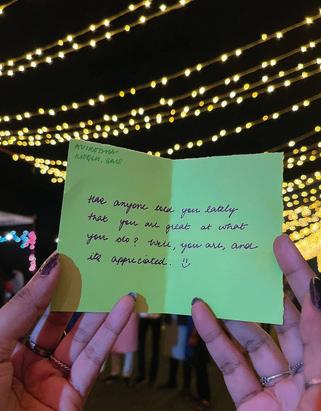 Has anyone told you lately
that you are great at what
you do? Well, you are, and
its appreciated. :)